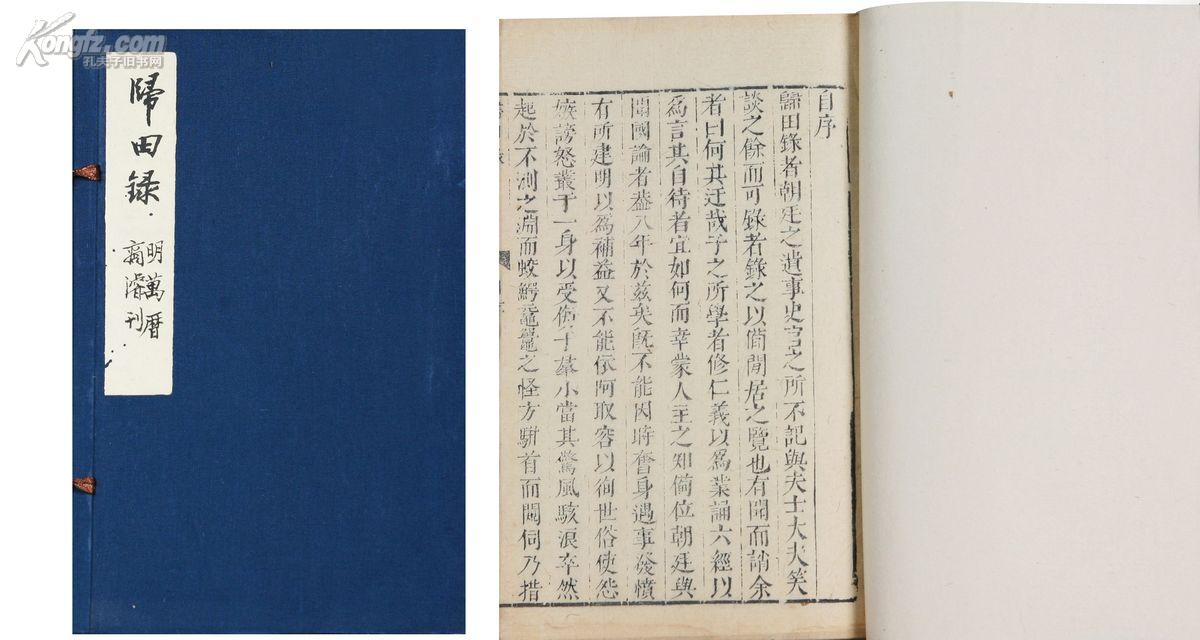 Kongfz.com
孔夫子旧书网
歸田録
明萬曆
商濬刊
自序
歸田錄者朝廷之遺事史官之所不記與夫士大夫笑
談之餘而可錄者錄之以備閒居之覽也有聞而誚余
者曰何其迂哉子之所學者修仁義以爲業誦六經以
爲言其自待者宜如何而幸蒙人主之知備位朝廷與
聞國論者葢八年於茲矣旣不能因時奮身遇事發憤
有所建明以爲補益又不能依阿取容以徇世俗使怨
嫉謗怒叢于一身以受侮于羣小當其驚風駭浪卒然
起於不測之淵而蛟鰐黿鼉之怪方駢首而闖伺乃措